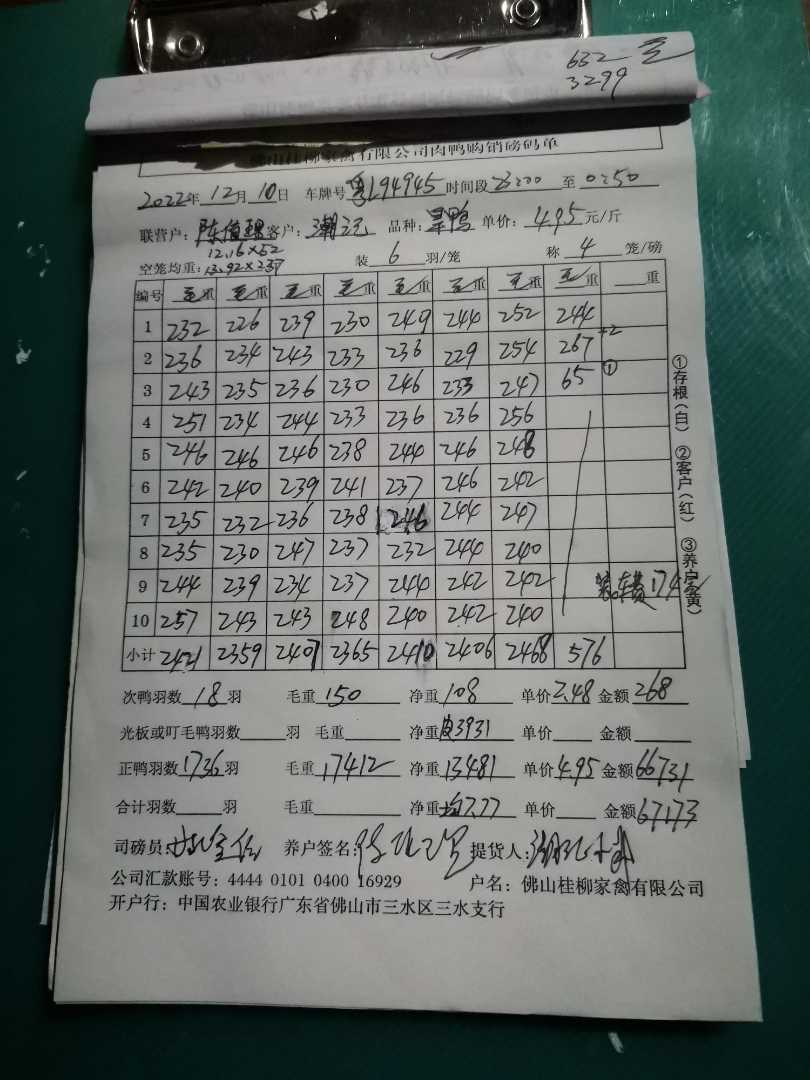 632
3299
佛山桂柳家禽有限公司肉鸭购销磅码单
2022年12月10日 车牌号 粤L94945 时间段 23:00 至 0:50
联营户: 陈 客户: 潮记 品种: 旱鸭 单价: 4.95 元/斤
12.16×52
空笼均重: 13.92×237 装 6 羽/笼 称 4 笼/磅
编号 毛重 毛重 毛重 毛重 毛重 毛重 毛重 毛重 重
1 232 226 239 230 249 244 252 244
2 236 234 243 233 236 229 254 267 +2
3 243 235 236 230 246 233 247 65 ①
4 251 234 244 233 236 236 256
5 246 246 246 238 244 246 248
6 242 240 239 241 237 246 242
7 235 232 236 238 246 244 247
8 235 230 247 237 232 244 240
9 244 239 234 237 244 242 242
10 257 243 243 248 240 242 240
小计 2421 2359 2407 2365 2410 2406 2468 576
装车费174
①存根(白) ②客户(红) ③养户(黄)
次鸭羽数 18 羽 毛重 150 净重 108 单价 2.48 金额 268
光板或叮毛鸭羽数 羽 毛重 净重 皮3931 单价 金额
正鸭羽数 1736 羽 毛重 17412 净重 13481 单价 4.95 金额 66731
合计羽数 羽 毛重 净重 均7.77 单价 金额 67173
司磅员: 养户签名: 提货人:
公司汇款账号: 4444 0101 0400 16929 户名: 佛山桂柳家禽有限公司
开户行: 中国农业银行广东省佛山市三水区三水支行